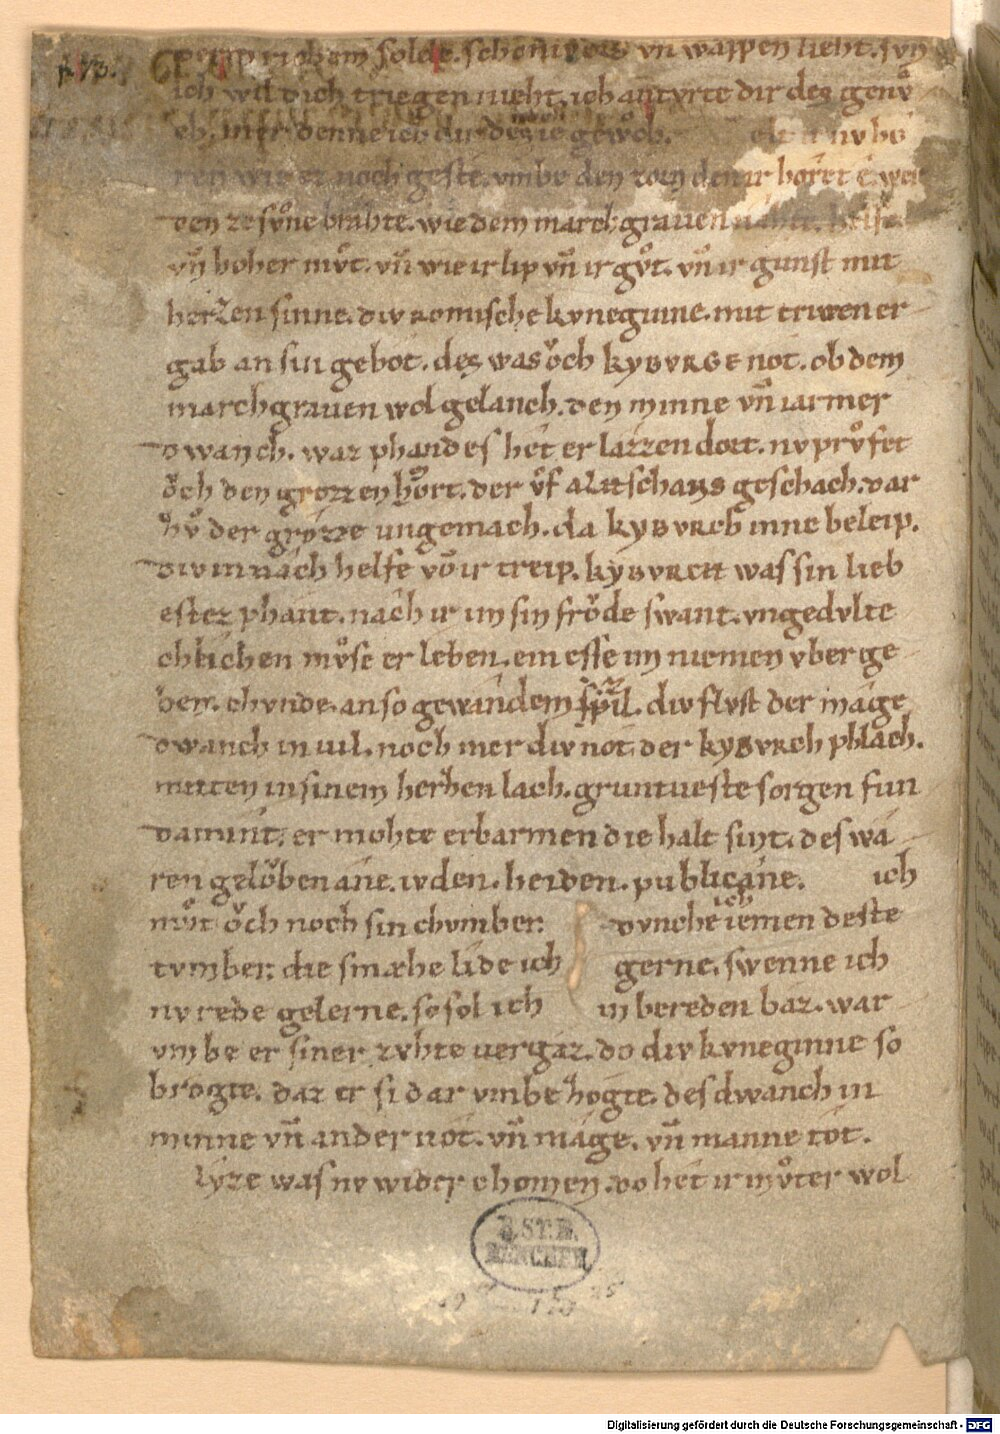 p. 73.
richem solde. schoniv ors vn̄ wappen lieht. svn
ich wil dich triegen nieht. ich antvrte dir des genv̊
ch. mer denne ich dir des ie gewv̊ch. nv ho
ren wie ez noch geste. vmbe den zorn den ir horet ê. wer
den ze sv̊ne brahte. wie dem marchgrauen nahte. helfe
vn̄ hoher mv̊t. vn̄ wie ir lip vn̄ ir gv̊t. vn̄ ir gunst mit
herzen sinne. div romische kvneginne. mit triwen er
gab an sin gebot. des was ôch KYBVRGE not. ob dem
marchgrauen wol gelanch. den minne vn̄ iarmer
dwanch. waz phandes het er lazzen dort. nv prv̊fet
ôch den grozzen hort. der v̊f alitschans geschach. var
hv̊ der grozze ungemach. da KYBVRCH inne beleip.
div in nâch helfe vō ir treip. KYBVRCH was sin lieb
estez phant. nâch ir im sin frôde swant. vngedvlte
chlichen mv̊se er leben. ein esse im niemen vberge
ben. chvnde. an so gewandem spil. div flvst der mâge
dwanch in vil. noch mer div not. der KYBVRCH phlach.
mitten in sinem herzen lach. gruntueste sorgen fun
damint. er mohte erbarmen die halt sint. des wa
ren gelôben âne. ivden. heiden. publicâne. ich
mv̊t ôch noch sin chvmber. dvnche ich iemen deste
tvmber: die smæhe lide ich gerne. swenne ich
nv rede gelerne. so sol ich in bereden baz. war
vmbe er siner zvhte uergaz. do div kvneginne so
brogte. daz er si dar vmbe zogte. des dwanch in
minne vn̄ ander not. vn̄ mâge. vn̄ manne tôt.
lyze was nv wider chomen. do het ir mv̊ter wol
B.ST.B.
MÜNCHEN.
Digitalisierung gefördert durch die Deutsche Forschungsgemeinschaft - DFG